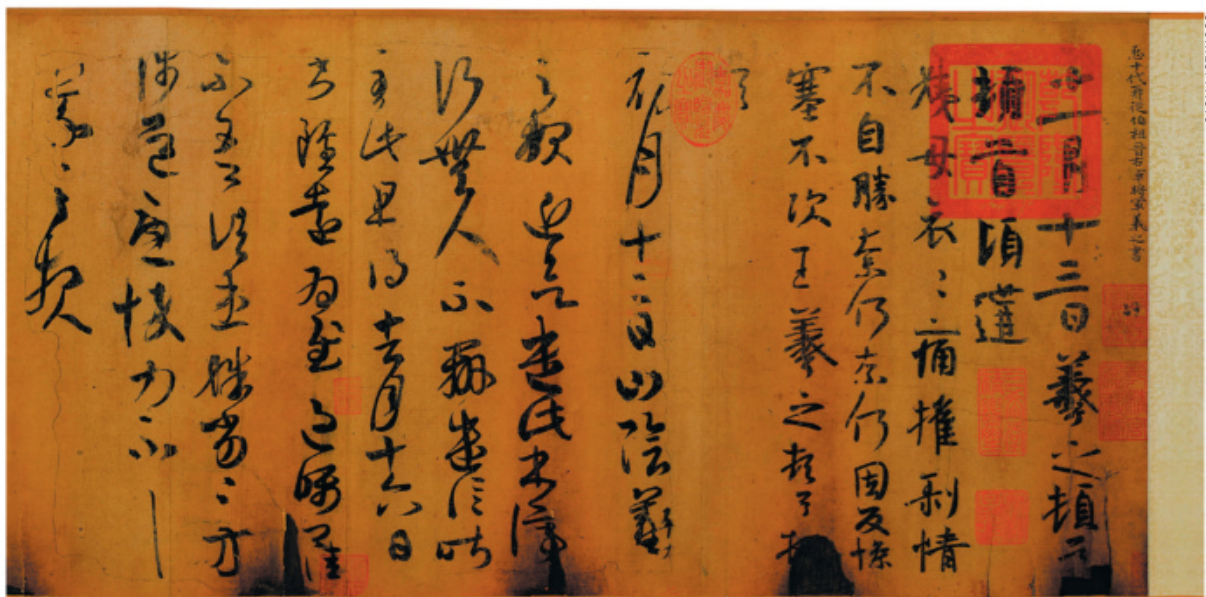 臣十代再從伯祖晉右軍將軍羲之書
十一月十三日羲之頓首
頓首頃遘
姨母哀〻痛摧剝情
不自勝奈何奈何因反慘
塞不次王羲之頓首頓
首
初月十二日山陰羲
之報近欲遣此書停
行無人不辦遣信昨
至此且得去月十六日
書雖遠為慰過囑卿佳
不吾諸患殊勞〻方
陟道憂悴力不具
羲之報